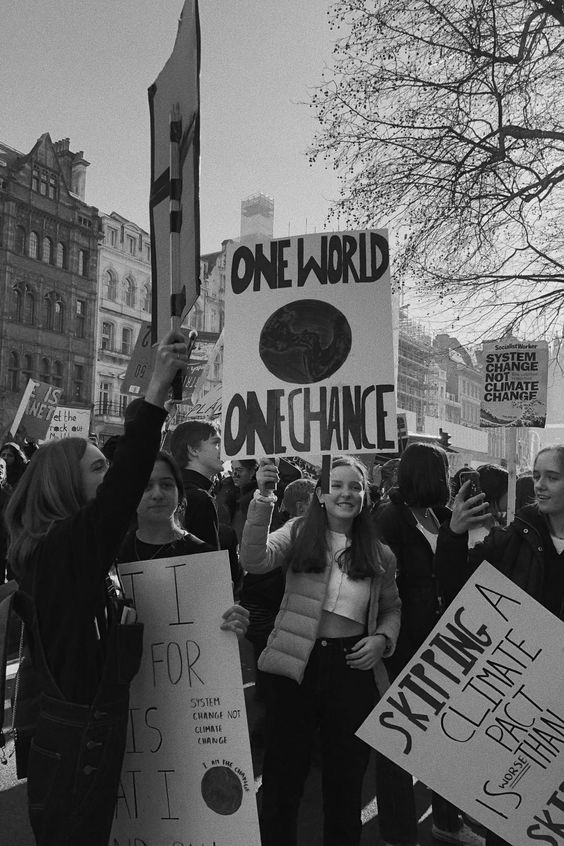 ONE WORLD
ONE CHANCE
Socialist Worker
SYSTEM
CHANGE
NOT
CLIMATE
CHANGE
IS
WET
let the
fuck out
my
I
FOR
IS
AT I
SYSTEM
CHANGE NOT
CLIMATE
CHANGE
I AM THE CHANGE
SKIPPING A
CLIMATE
PACT
IS WORSE THAN